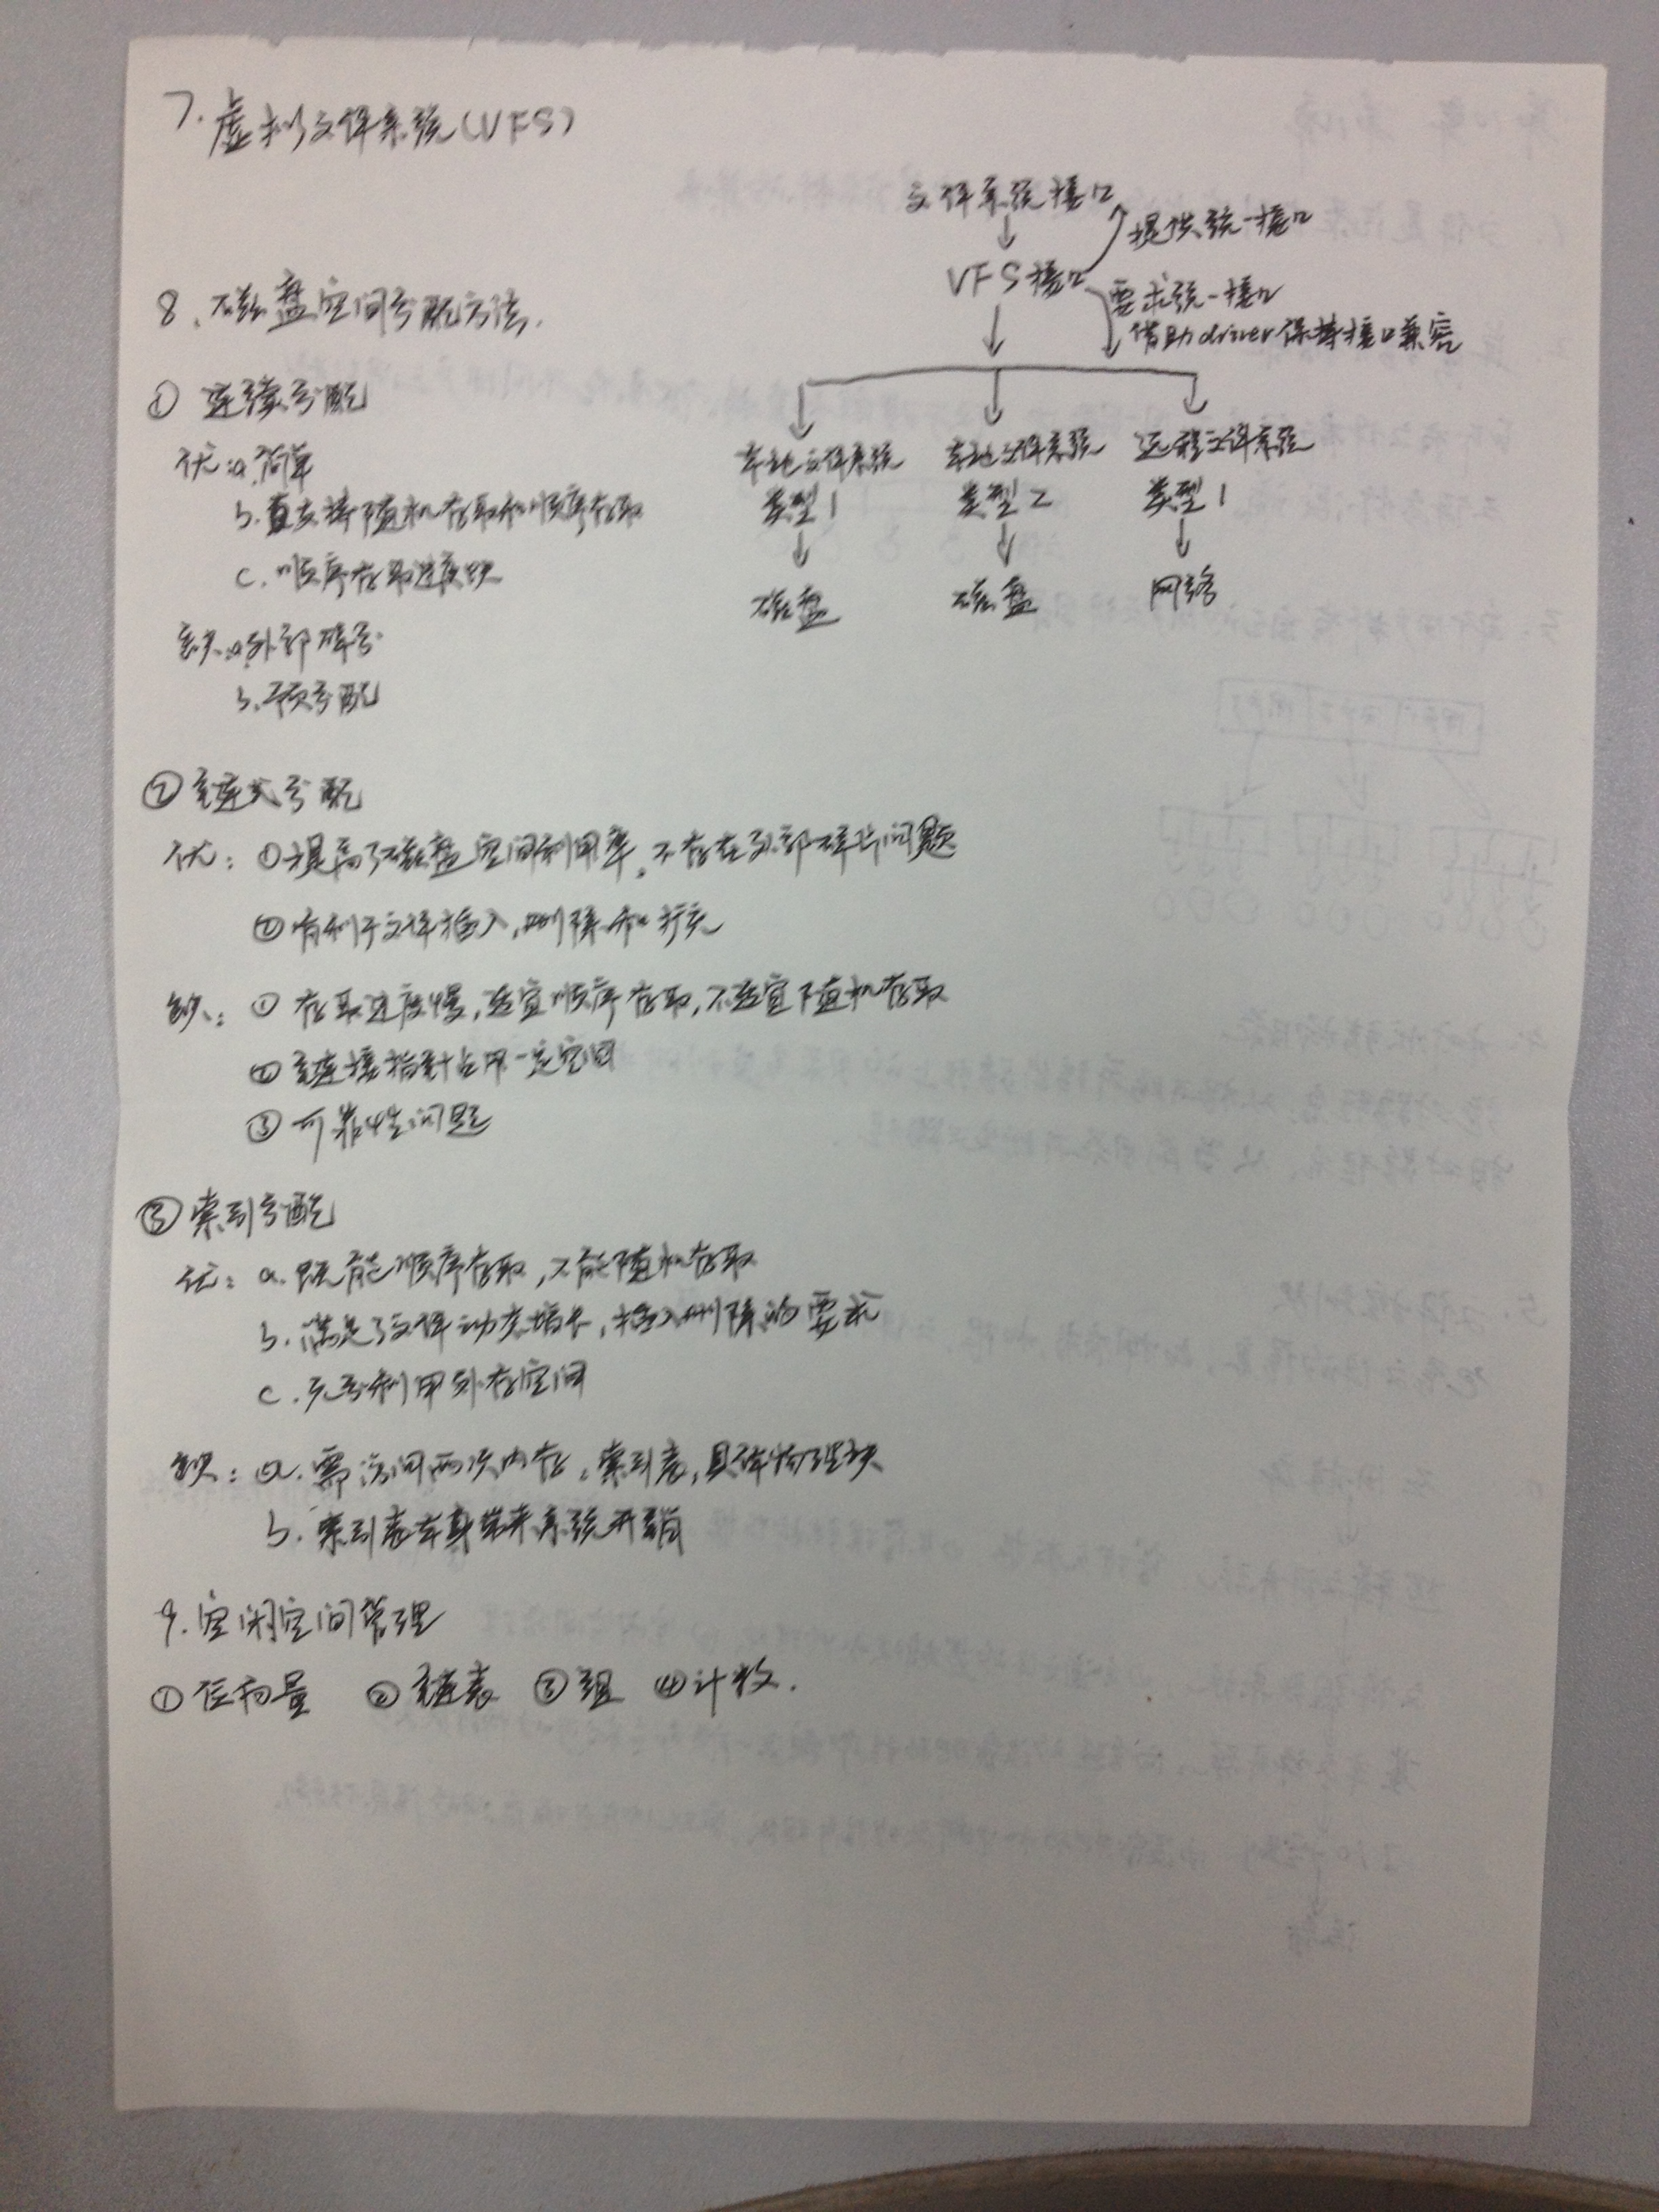 7. 虚拟文件系统(VFS)
文件系统接口
提供统一接口
VFS接口
要求统一接口
借助driver保持接口兼容
本地文件系统 本地文件系统 远程文件系统
类型1 类型2 类型1
磁盘 磁盘 网络
8. 磁盘空间分配方法.
① 连续分配
优: a.简单
b.支持随机存取和顺序存取
c. 顺序存取速度快
缺: a.外部碎片
b.预分配
② 链式分配
优: ①提高了磁盘空间利用率。不存在外部碎片问题
②有利于文件插入,删除和扩充
缺: ① 存取速度慢,适宜顺序存取,不适宜随机存取
② 链接指针占用一定空间
③ 可靠性问题
③ 索引分配
优: a. 既能顺序存取,又能随机存取
b. 满足了文件动态增长,插入删除的要求
c. 充分利用外存空间
缺: a. 需访问两次内存:索引表,具体物理块
b. 索引表本身带来系统开销
9. 空闲空间管理
① 位向量 ② 链表 ③ 组 ④ 计数.